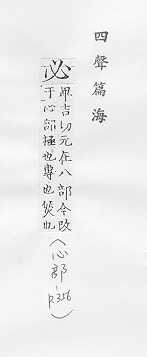 四聲篇海
必
卑吉切元在八部今改
于心部極也專也然也
(心部-p.356)